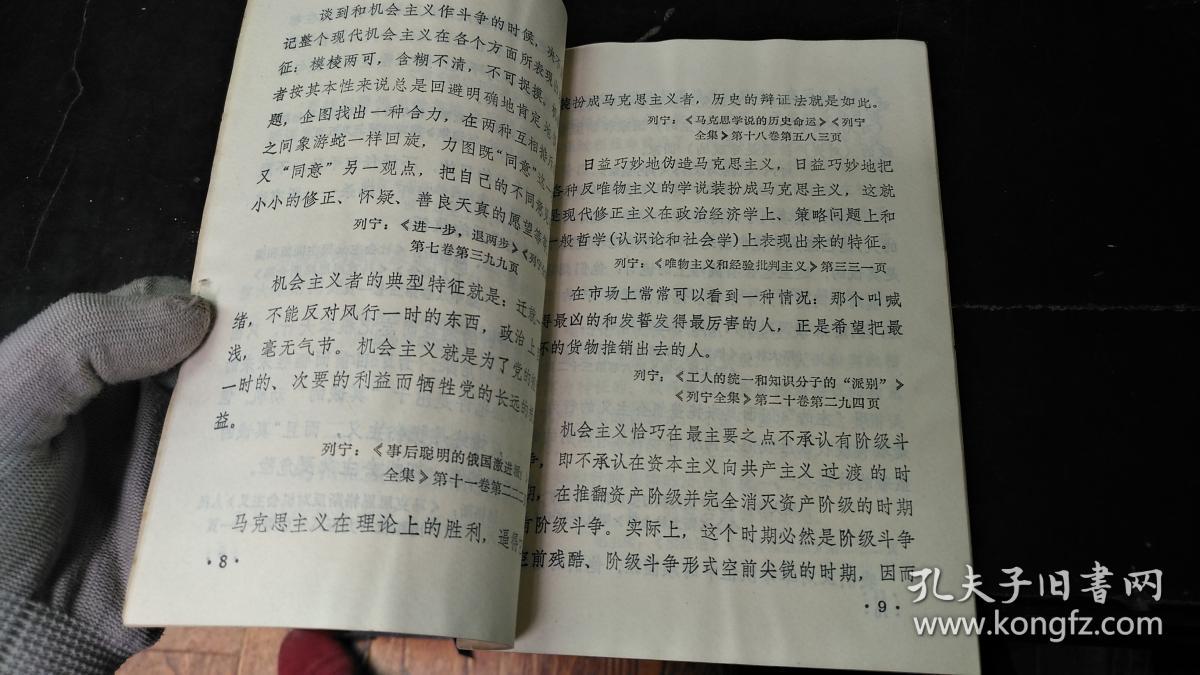 谈到和机会主义作斗争的时候，决
记整个现代机会主义在各个方面所表现
征：模棱两可，含糊不清，不可捉摸。
者按其本性来说总是回避明确地肯定地
题，企图找出一种合力，在两种互相排斥
之间象游蛇一样回旋，力图既“同意”这一
又“同意”另一观点，把自己的不同意见
小小的修正、怀疑、善良天真的愿望等
列宁：《进一步，退两步》《列宁
第七卷第三九九页
机会主义者的典型特征就是：迁就
绪，不能反对风行一时的东西，政治上
浅，毫无气节。机会主义就是为了党的
一时的、次要的利益而牺牲党的长远的
益。
列宁：《事后聪明的俄国激进派
全集》第十一卷第二二二
马克思主义在理论上的胜利，逼得
·8·
装扮成马克思主义者，历史的辩证法就是如此。
列宁：《马克思学说的历史命运》《列宁
全集》第十八卷第五八三页
日益巧妙地伪造马克思主义，日益巧妙地把
各种反唯物主义的学说装扮成马克思主义，这就
是现代修正主义在政治经济学上、策略问题上和
一般哲学(认识论和社会学)上表现出来的特征。
列宁：《唯物主义和经验批判主义》第三三一页
在市场上常常可以看到一种情况：那个叫喊
得最凶的和发誓发得最厉害的人，正是希望把最
坏的货物推销出去的人。
列宁：《工人的统一和知识分子的“派别”》
《列宁全集》第二十卷第二九四页
机会主义恰巧在最主要之点不承认有阶级斗
争，即不承认在资本主义向共产主义过渡的时
期，在推翻资产阶级并完全消灭资产阶级的时期
有阶级斗争。实际上，这个时期必然是阶级斗争
空前残酷、阶级斗争形式空前尖锐的时期，因而
·9·
孔夫子旧书网
www.kongfz.com